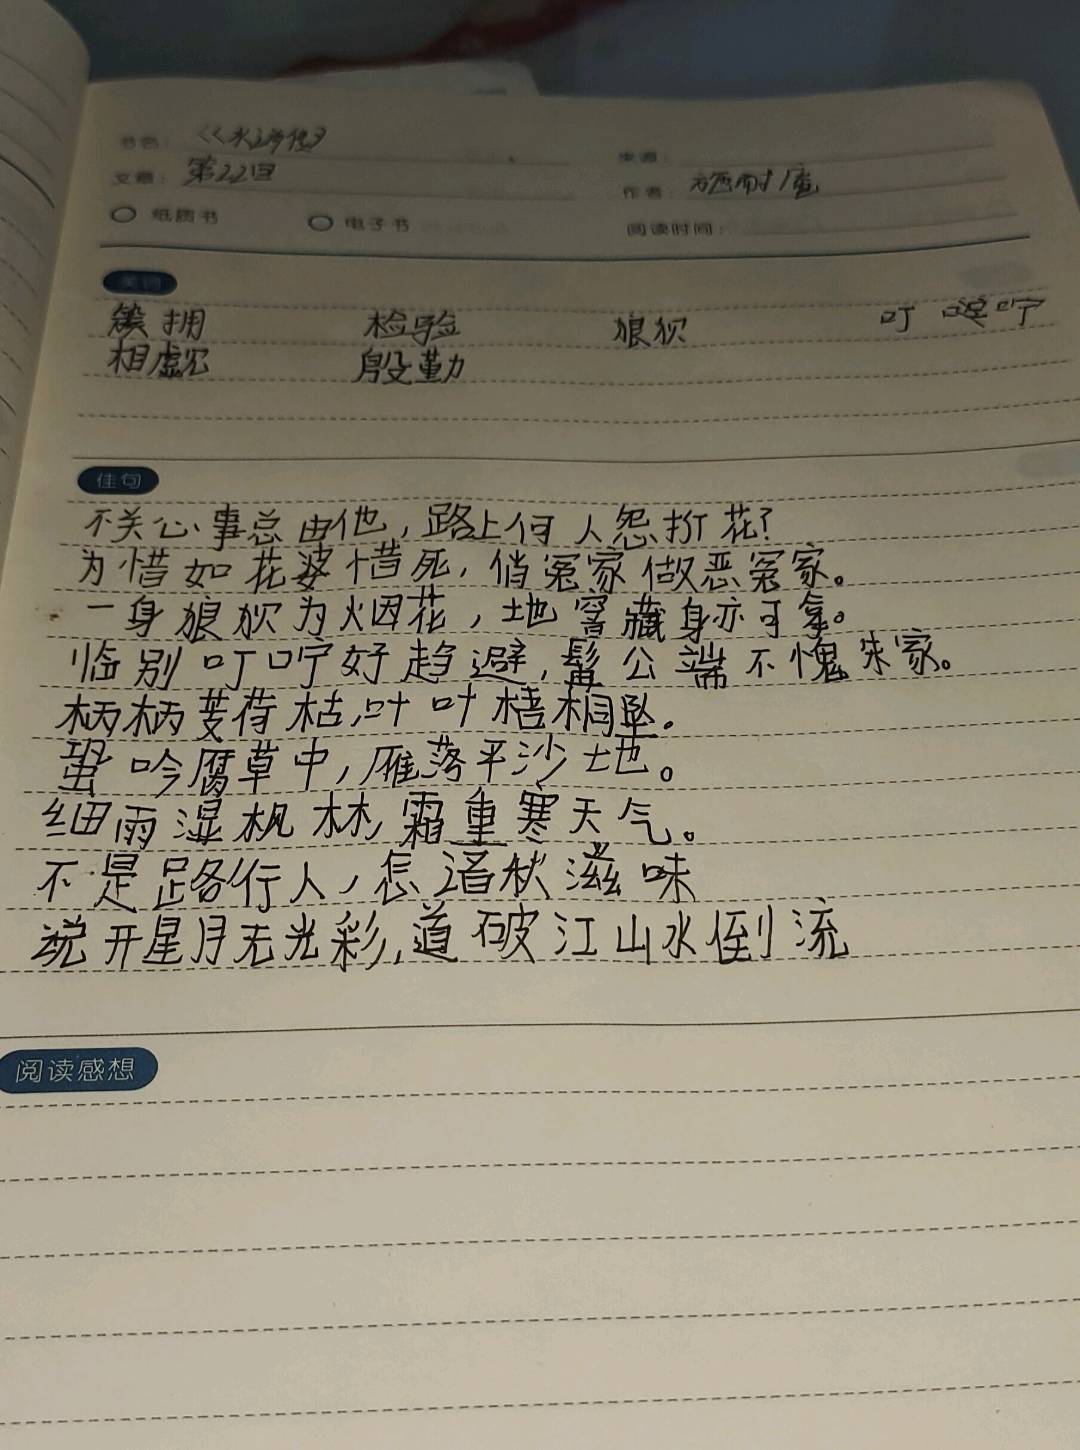 书名：《水浒传》
来源：
文章：第22回
作者：施耐庵
纸质书 电子书 阅读时间：
美词
簇拥 检验 狼狈 叮咛
相觑 殷勤
佳句
不关心事总由他，路上何人怨折花？
为惜如花婆惜死，俏冤家做恶冤家。
一身狼狈为烟花，地窖藏身亦可拿。
临别叮咛好趋避，髯公端不愧朱家。
柄柄芰荷枯，叶叶梧桐坠。
蛩吟腐草中，雁落平沙地。
细雨湿枫林，霜重寒天气。
不是路行人，怎谙秋滋味
说开星月无光彩，道破江山水倒流
阅读感想